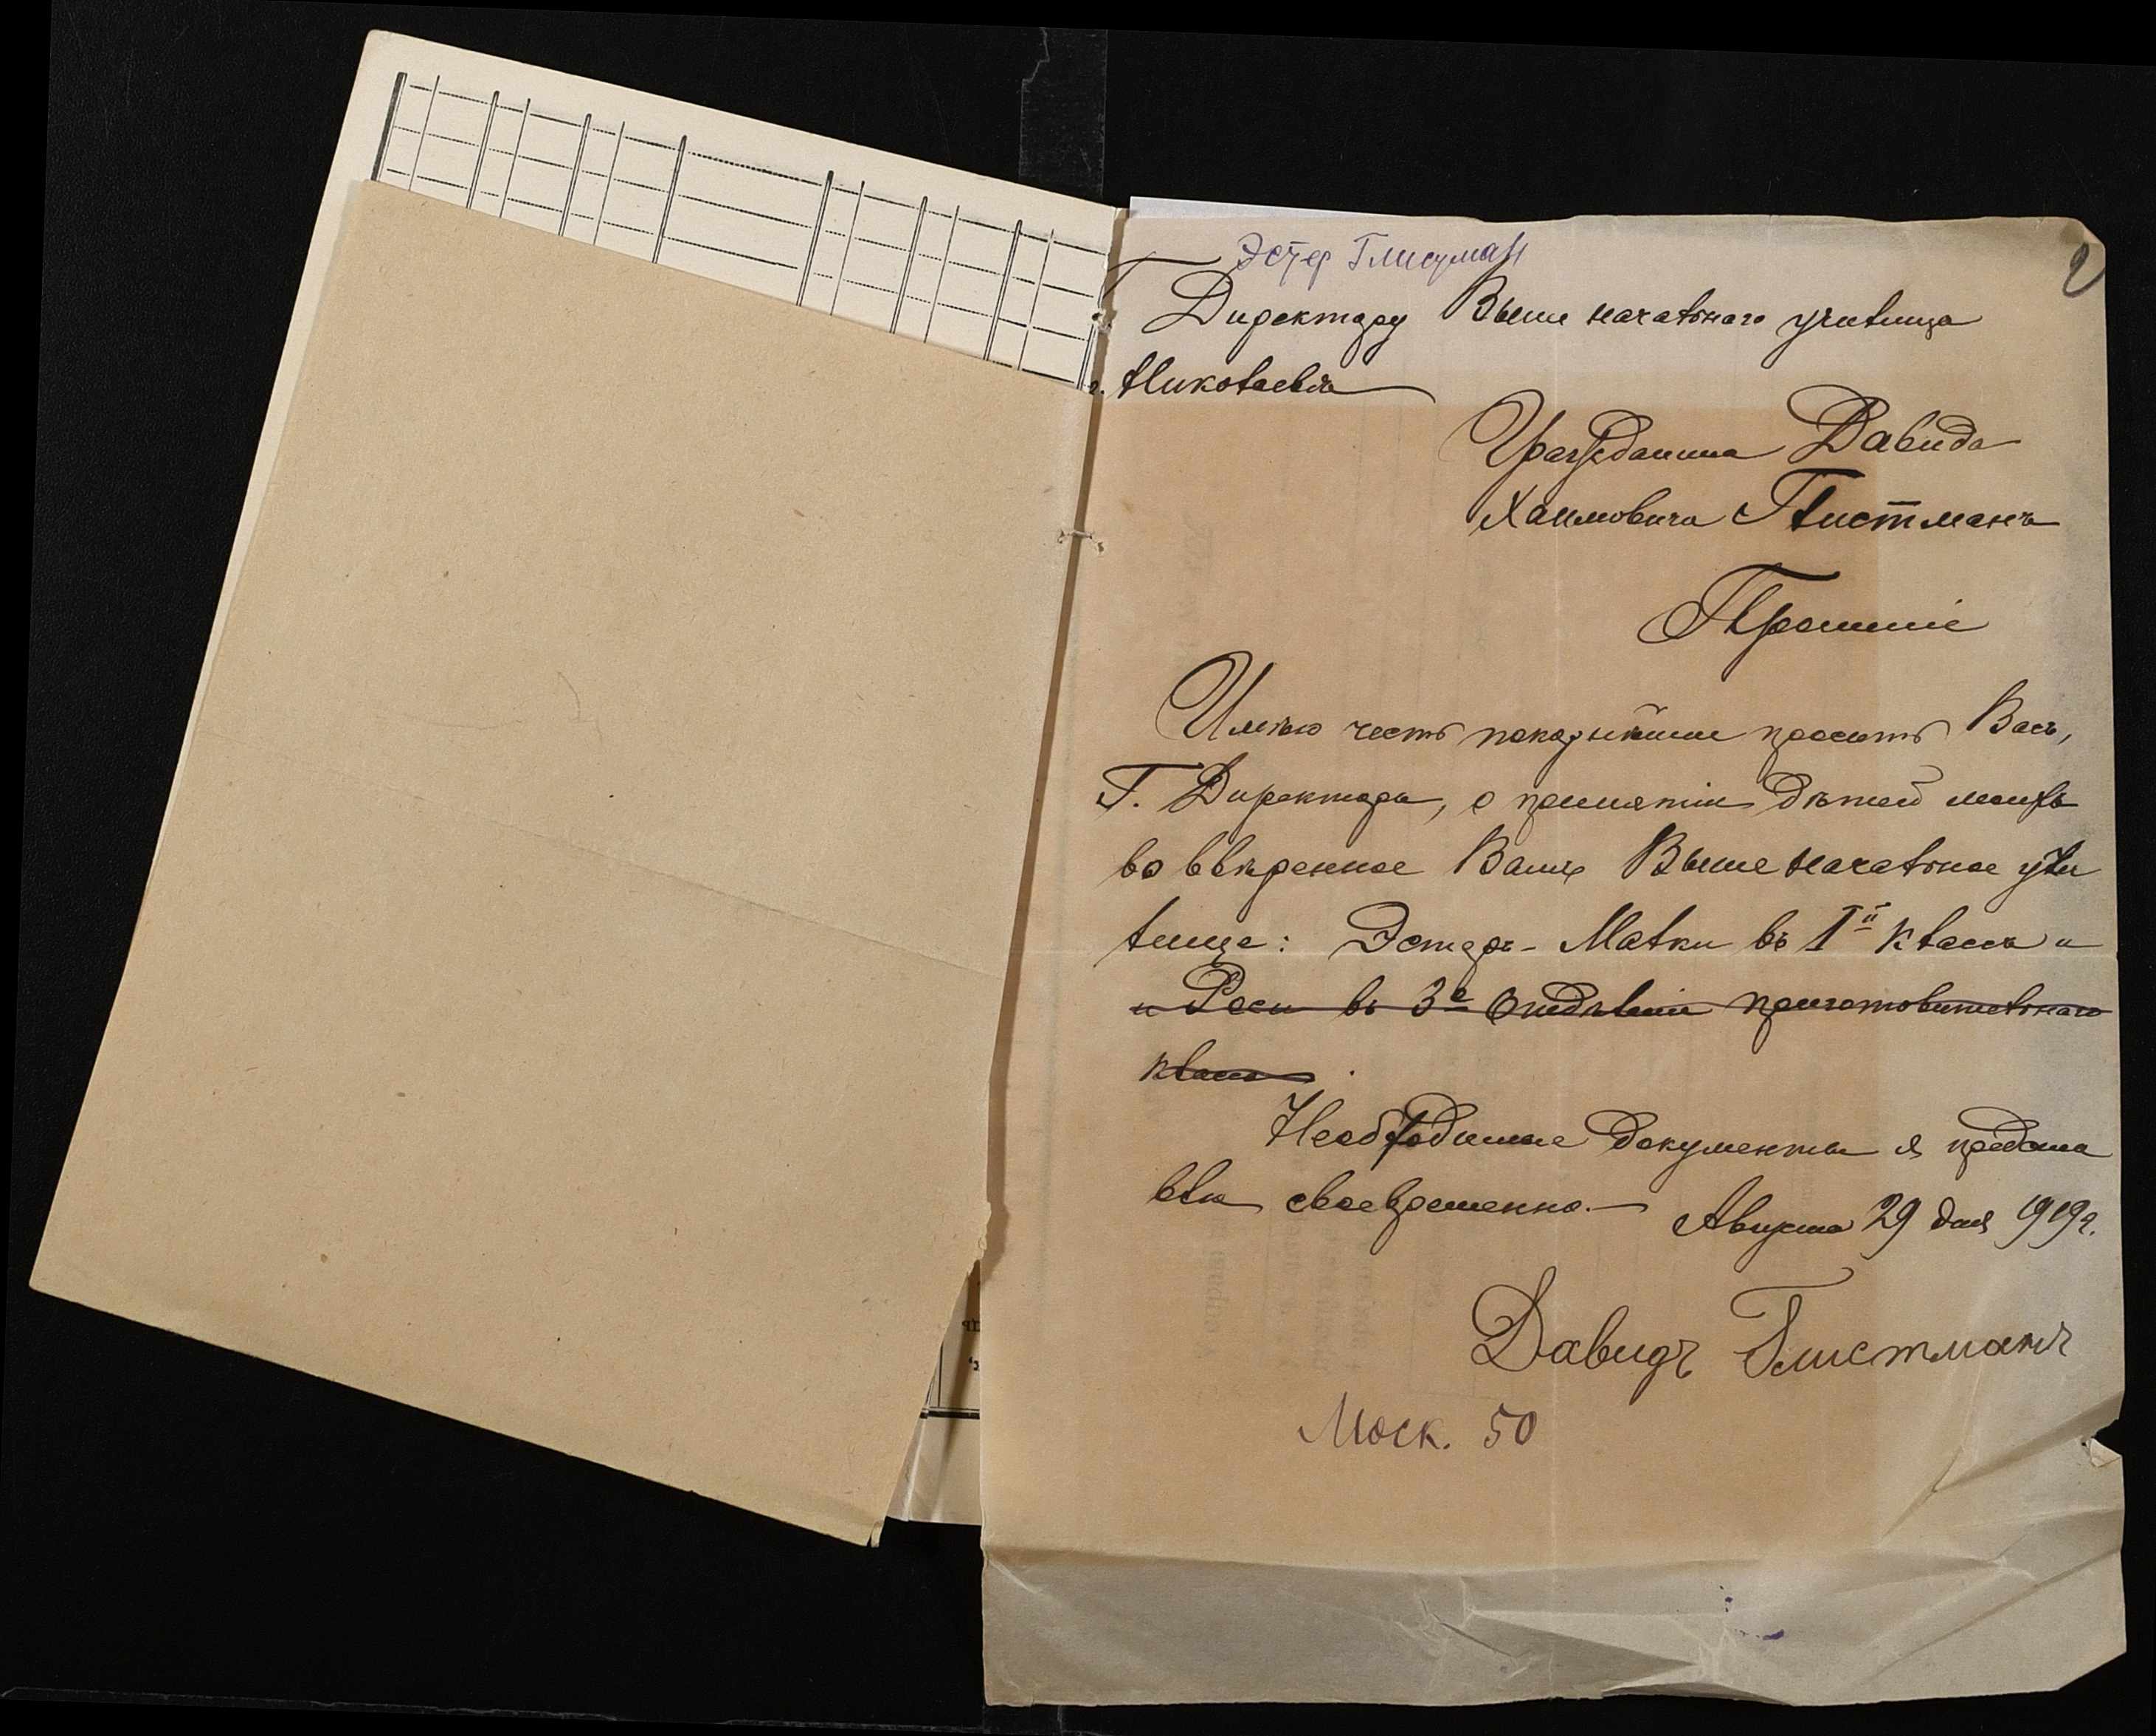 Эстер Глистман
2
Г. Директору Выше начальнаго училища
г. Николаева
Гражданина Давида
Хаимовича Глистманъ
Прошеніе
Имѣю честь покорнѣйше просить Васъ,
Г. Директоръ, о принятіи дѣтей моихъ
во ввѣренное Вамъ Выше начальное учи
лище: Эстеръ - Малки въ 1й классъ и
и Росы въ 3е Отдѣленіе приготовительнаго
класса.
Необходимые документы я предста
влю своевременно. — Августа 29 дня 1919 г.
Давидъ Глистманъ
Моск. 50